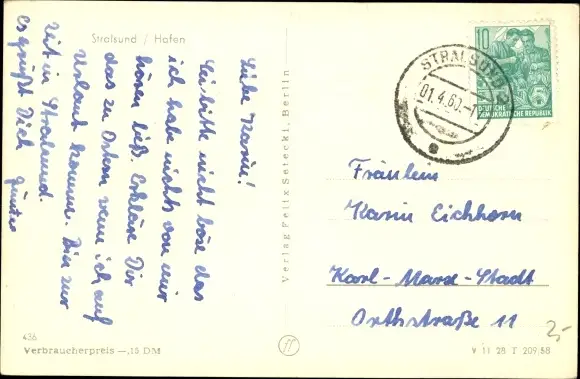 Stralsund / Hafen
Liebe Karin!
Sei bitte nicht böse das
ich habe nichts von mir
hören ließ. Erkläre Dir
das zu Ostern wenn ich auf
Urlaub komme. Bin zur
Zeit in Stralsund.
Es grüßt Dich Günter
436
Verbraucherpreis —,15 DM
Verlag Felix Setecki, Berlin
10
5
DEUTSCHE
DEMOKRATISCHE REPUBLIK
STRALSUND
01.4.60.-1
Fräulein
Karin Eichhorn
Karl-Marx-Stadt
Orthstraße 11
V 11 28 T 209/58